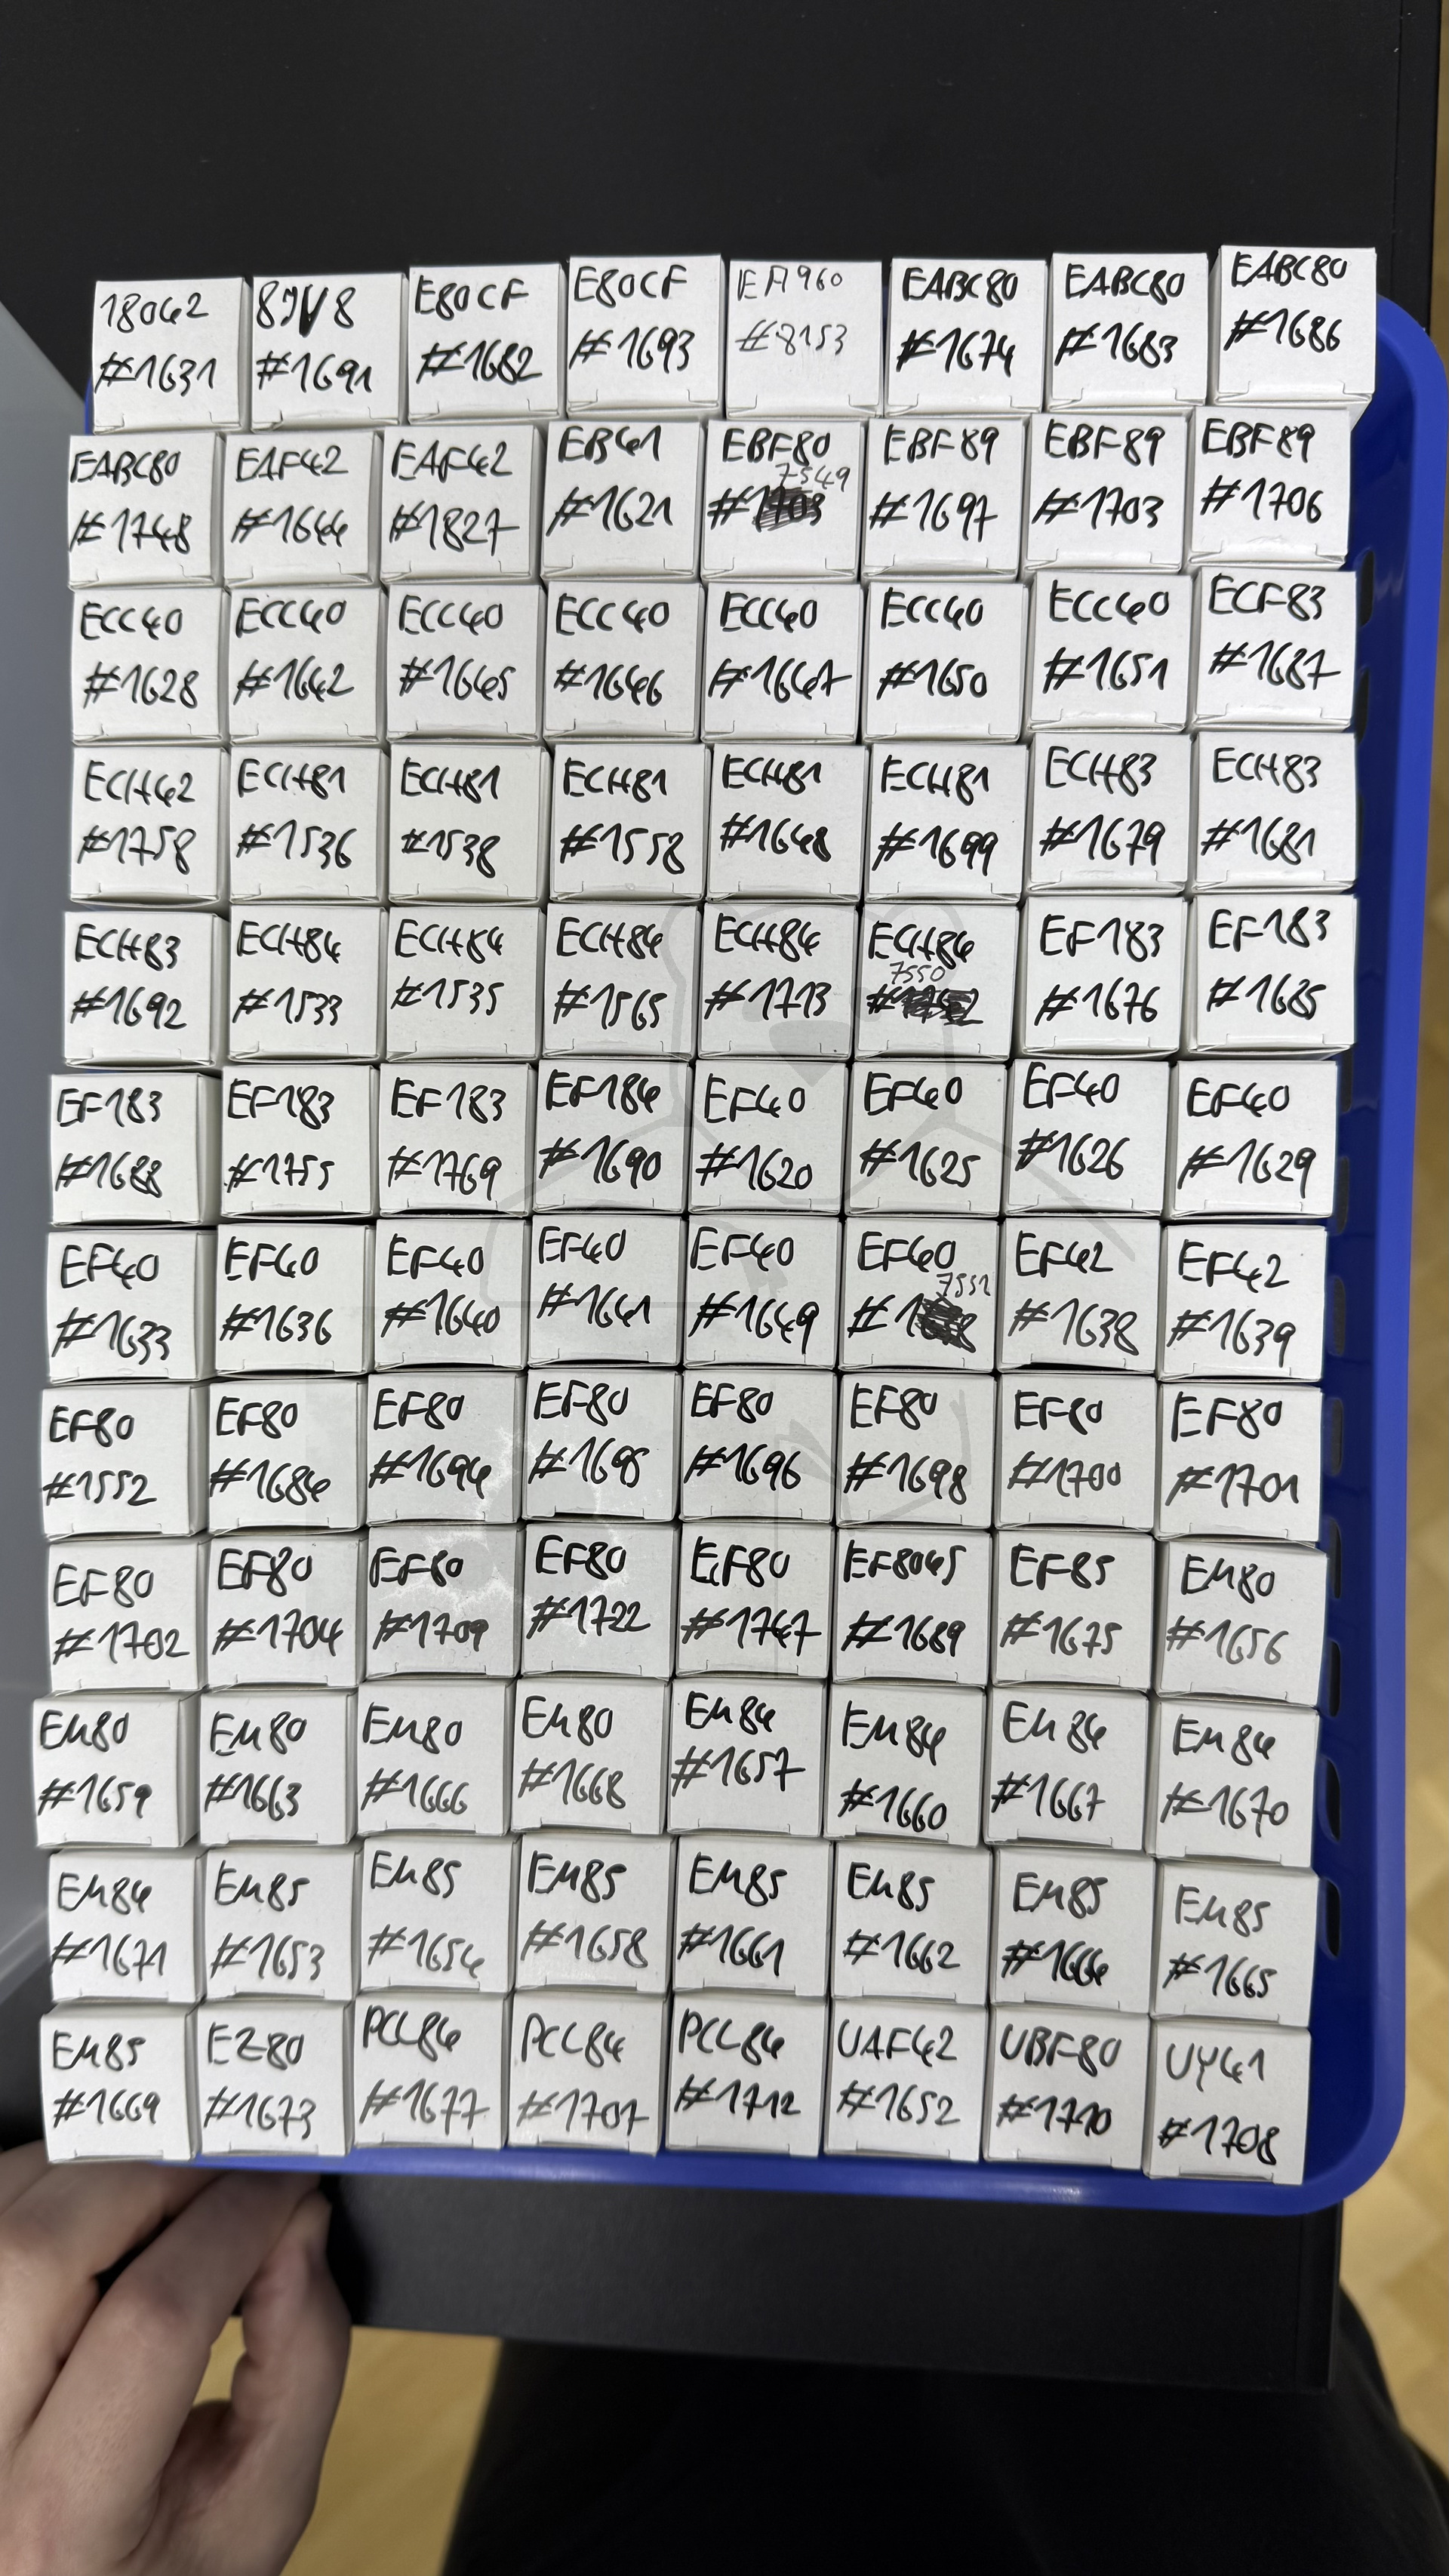 18042 8JV8 E80CF E80CF EA960 EABC80 EABC80 EABC80
#1631 #1691 #1682 #1693 #8153 #1674 #1683 #1686
EABC80 EAF42 EAF42 EB41 EBF80 EBF89 EBF89 EBF89
7549
#1748 #1644 #1827 #1621 #1697 #1703 #1706
ECC40 ECC40 ECC40 ECC40 ECC40 ECC40 ECC40 ECF83
#1628 #1642 #1645 #1646 #1647 #1650 #1651 #1687
ECH42 ECH81 ECH81 ECH81 ECH81 ECH81 ECH83 ECH83
#1758 #1536 #1538 #1558 #1648 #1699 #1679 #1681
ECH83 ECH84 ECH84 ECH84 ECH84 ECH84 EF183 EF183
7550
#1692 #1533 #1535 #1565 #1713 #1676 #1685
EF183 EF183 EF183 EF184 EF40 EF40 EF40 EF40
#1688 #1755 #1769 #1690 #1620 #1625 #1626 #1629
EF40 EF40 EF40 EF40 EF40 EF40 EF42 EF42
7551
#1633 #1636 #1640 #1641 #1649 #1638 #1639
EF80 EF80 EF80 EF80 EF80 EF80 EF80 EF80
#1552 #1684 #1694 #1695 #1696 #1698 #1700 #1701
EF80 EF80 EF80 EF80 EF80 EF8045 EF85 EM80
#1702 #1704 #1709 #1722 #1747 #1689 #1675 #1656
EM80 EM80 EM80 EM80 EM84 EM84 EM84 EM84
#1659 #1663 #1666 #1668 #1657 #1660 #1667 #1670
EM84 EM85 EM85 EM85 EM85 EM85 EM85 EM85
#1671 #1653 #1654 #1658 #1661 #1662 #1664 #1665
EM85 EZ80 PCL84 PCL84 PCL84 UAF42 UBF80 UY41
#1669 #1673 #1677 #1707 #1712 #1652 #1710 #1708